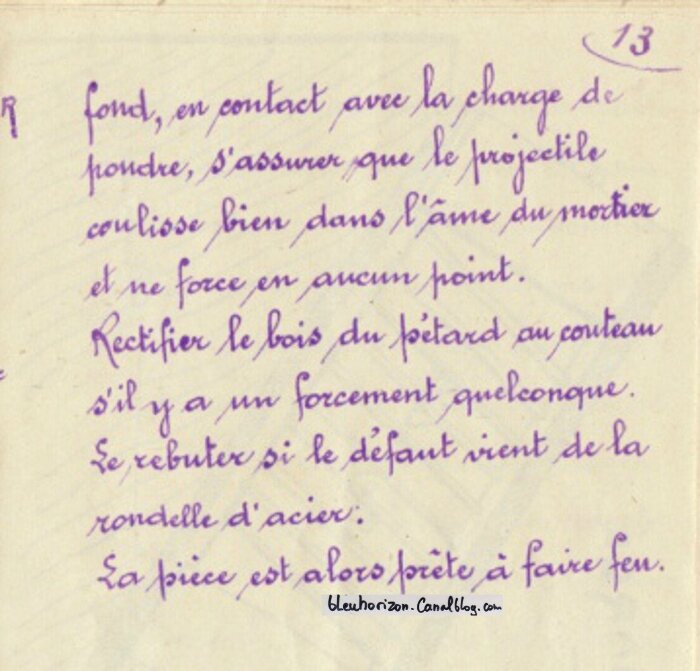 13
R
fond, en contact avec la charge de
poudre, s'assurer que le projectile
coulisse bien dans l'âme du mortier
et ne force en aucun point.
Rectifier le bois du pétard au couteau
s'il y a un forcement quelconque.
Le rebuter si le défaut vient de la
rondelle d'acier.
La pièce est alors prête à faire feu.
bleuhorizon.Canalblog.com